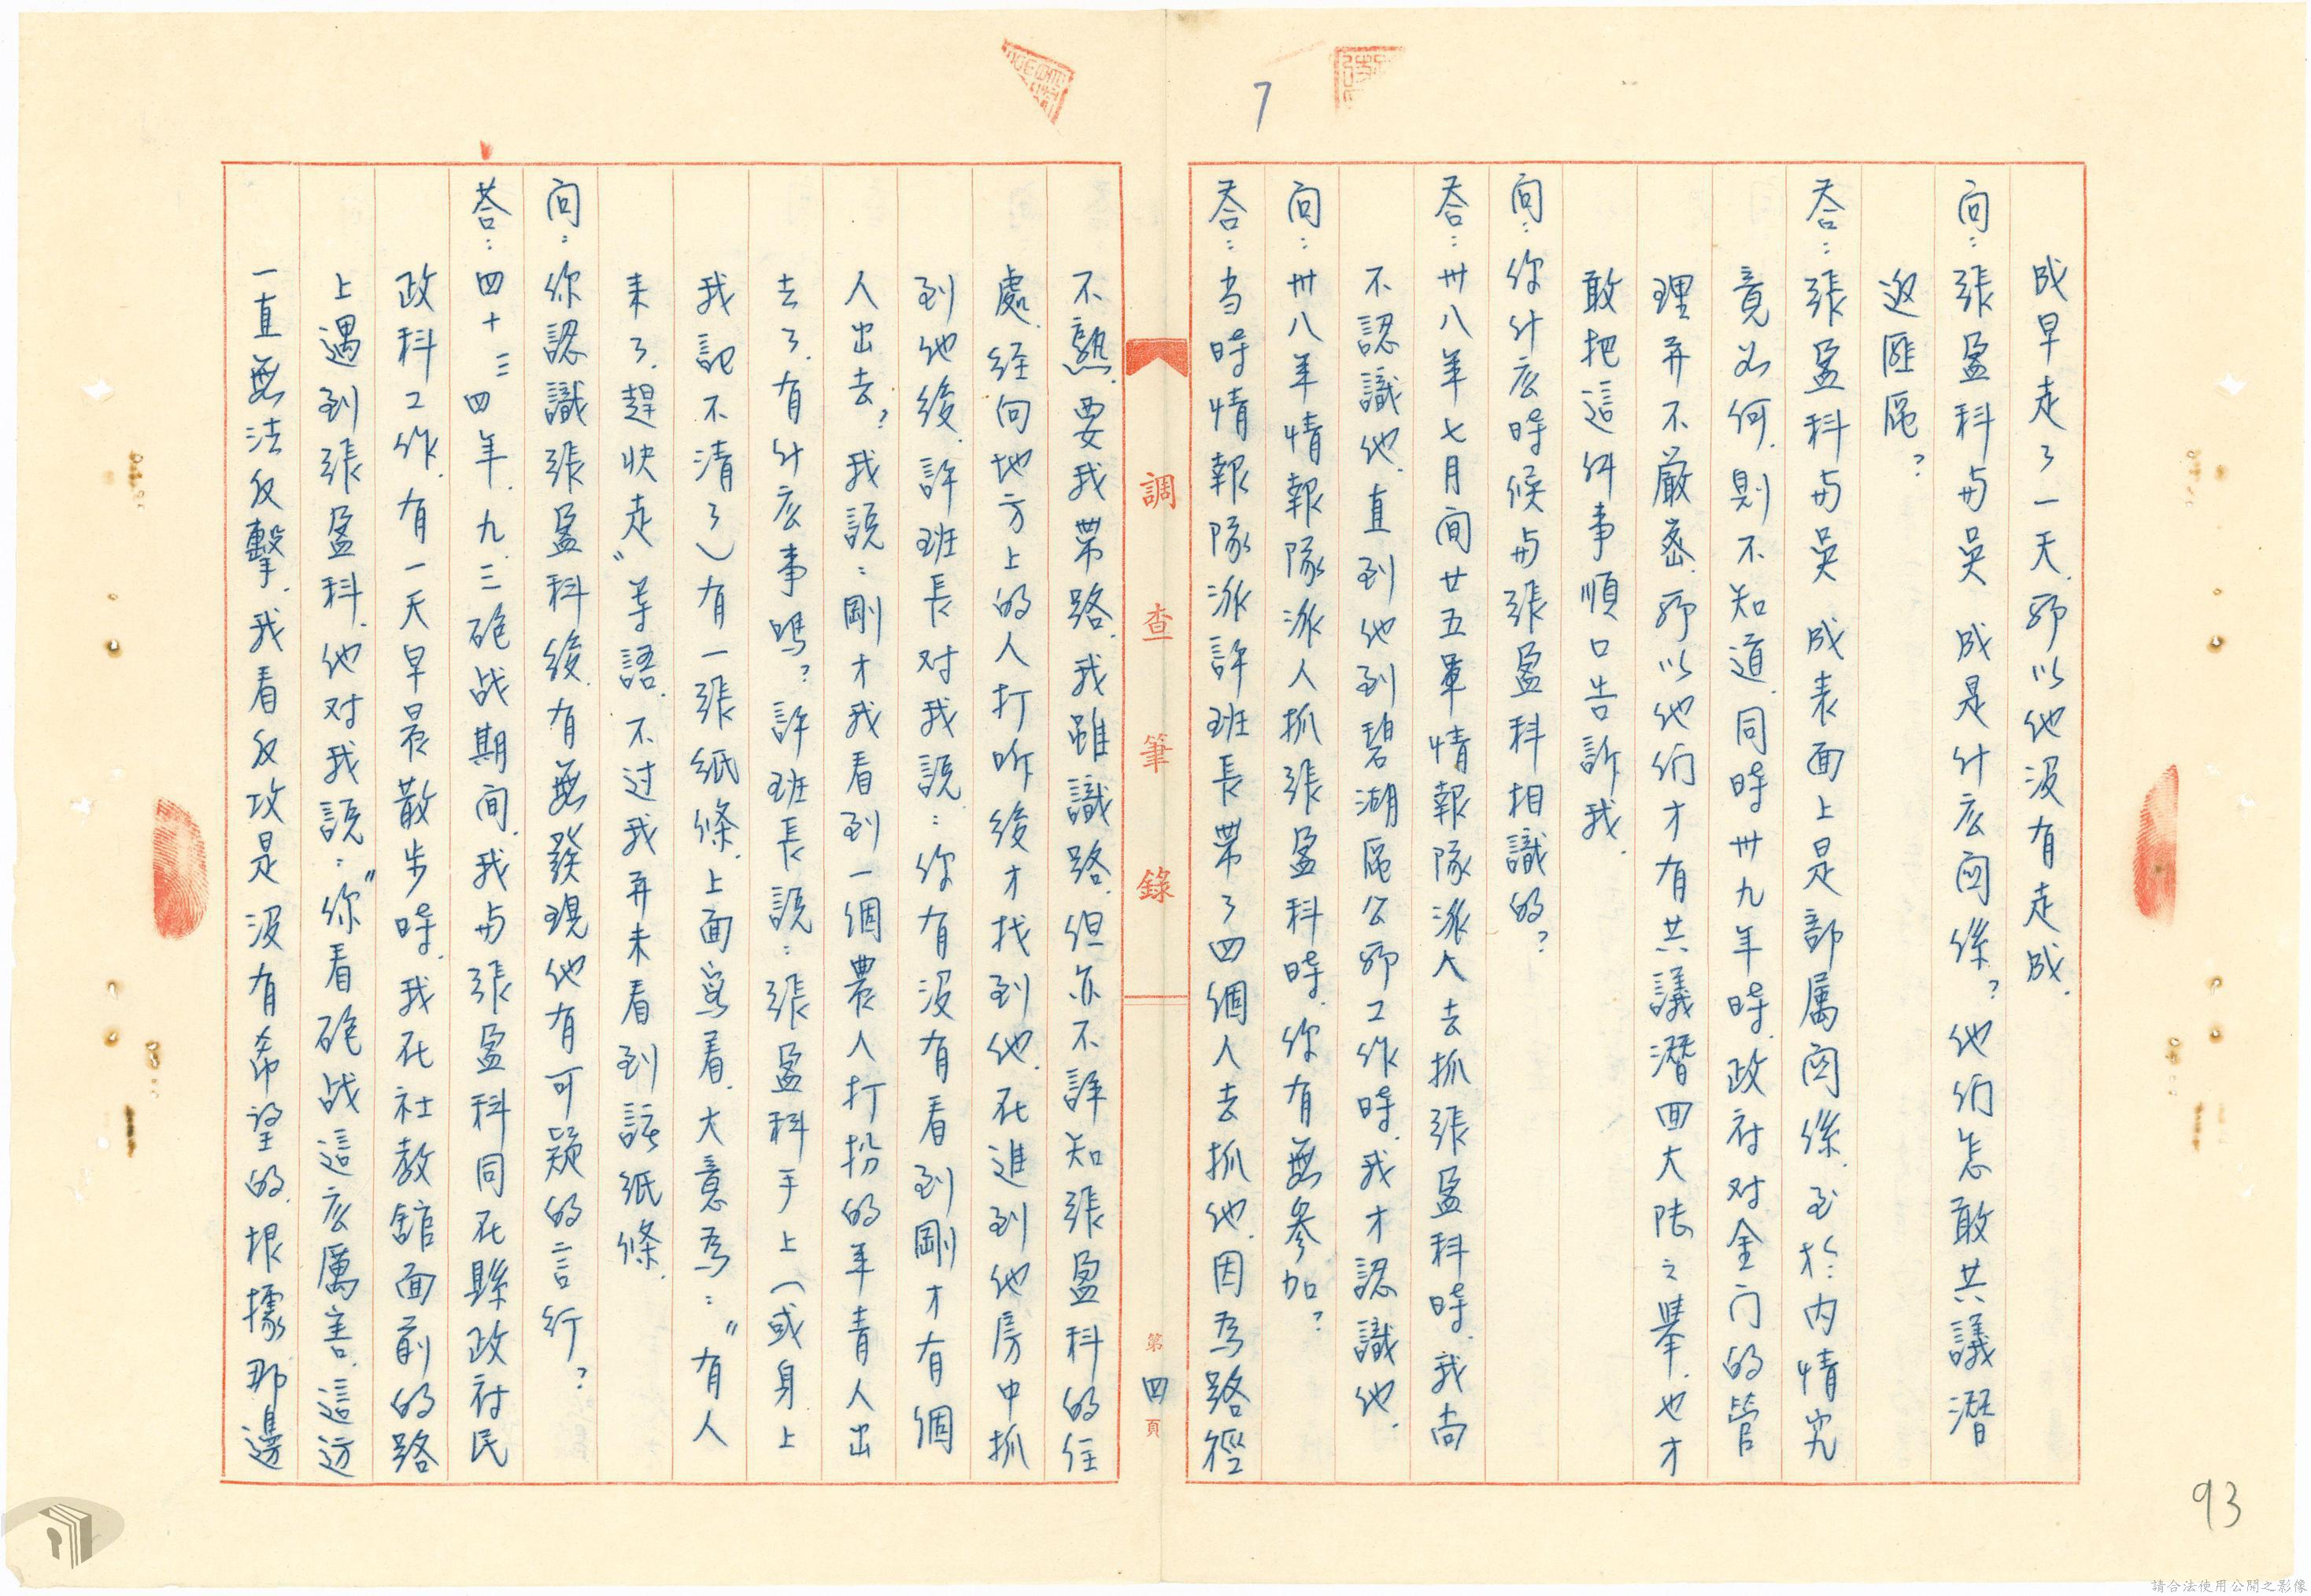 7
成早走了一天.所以他没有走成.
问:張盈科与吳 成是什么関係?他们怎敢共議潛
返匪區?
答:張盈科与吳 成表面上是部属関係.至於内情究
竟如何.則不知道.同時卅九年時.政府对金门的管
理并不嚴密.所以他们才有共議潛回大陆之舉.也才
敢把這件事順口告訴我.
问:你什么時候与張盈科相識的?
答:卅八年七月间廿五軍情報隊派人去抓張盈科時.我尚
不認識他.直到他到碧湖區公所工作時.我才認識他.
问:卅八年情報隊派人抓張盈科時.你有無參加?
答:当時情報隊派許班長帶了四個人去抓他.因為路徑
調查筆錄
第四頁
不熟.要我帶路.我雖識路.但亦不詳知張盈科的住
處.经向地方上的人打听後才找到他.在進到他房中抓
到他後.許班長对我説:你有没有看到剛才有個
人出去?我説:剛才我看到一個農人打扮的年青人出
去了.有什么事嗎?許班長説:張盈科手上(或身上
我記不清了)有一張紙條.上面寫着.大意為:"有人
来了.趕快走"等語.不过我并未看到該紙條.
问:你認識張盈科後.有無發現他有可疑的言行?
答:四十三四年.九.三砲战期间.我与張盈科同在縣政府民
政科工作.有一天早晨散步時.我在社教館面前的路
上遇到張盈科.他对我説:"你看砲战這么厲害.這边
一直無法反擊.我看反攻是没有希望的.根據那邊
93
請合法使用公開之影像